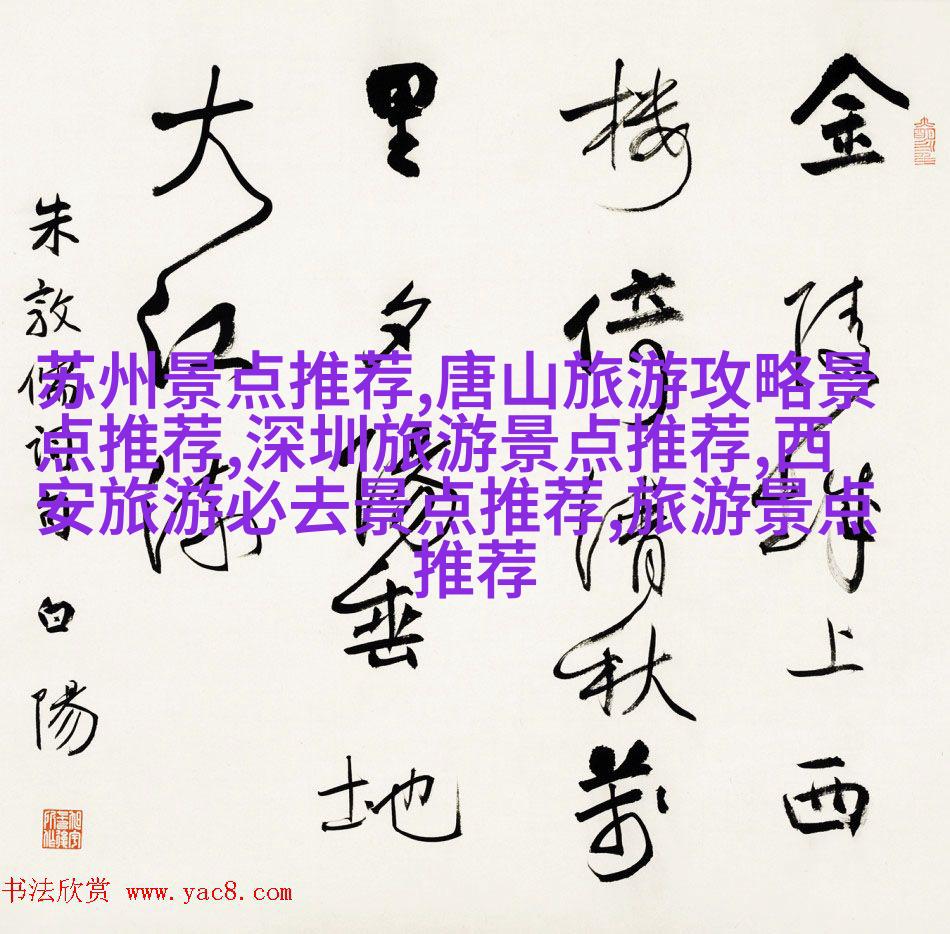 金陵城上西
楼倚清秋万
里夕陽垂地
大江流
朱敦儒词句 白陽
苏州景点推荐,唐山旅游攻略景
点推荐,深圳旅游景点推荐,西
安旅游必去景点推荐,旅游景点
推荐
书法欣赏 www.yac8.com